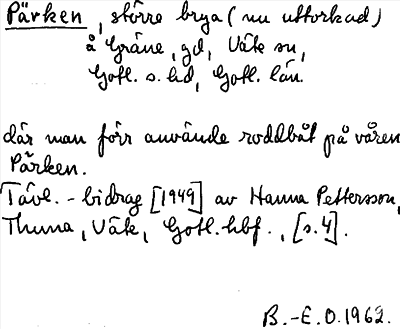 Pärken, större brya (nu uttorkad)
å Gräne, gd, Väte sn,
Gotl. s. hd, Gotl. län.
där man förr använde roddbåt på våren
Pärken.
Tävl. - bidrag [1949] av Hanna Pettersson,
Thuna, Väte, Gotl. hbf., [s. 4].
B.-E.O. 1962.